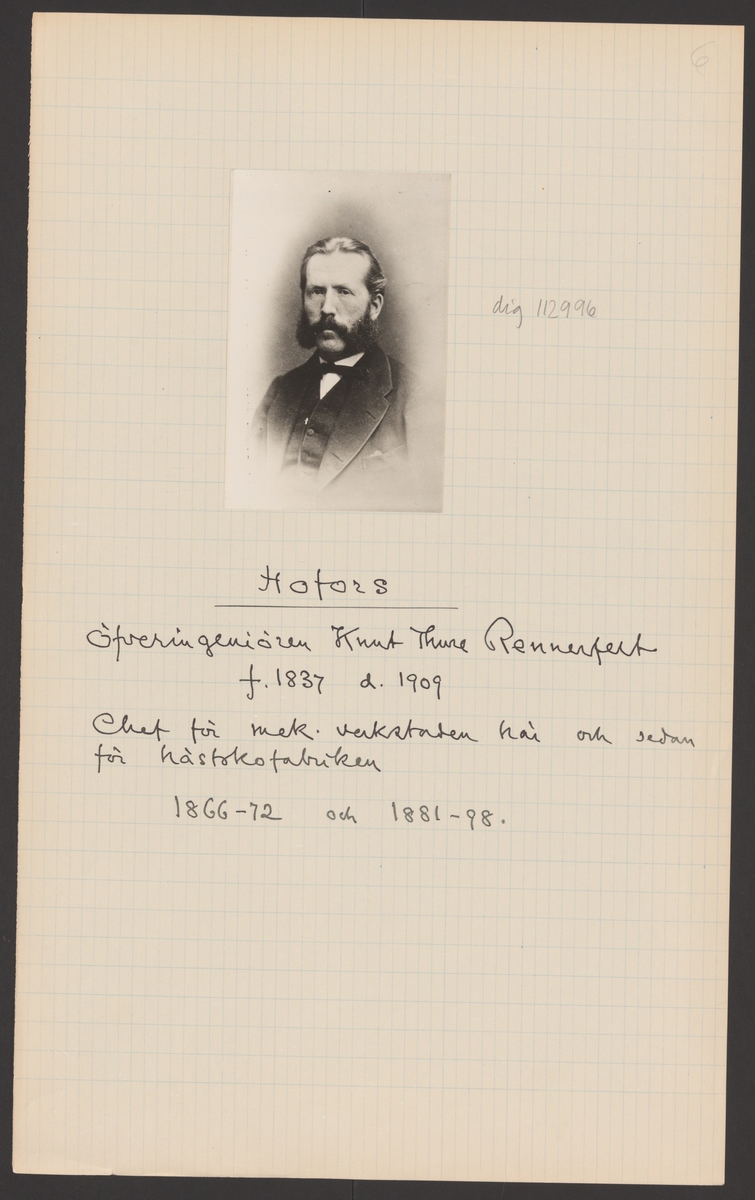 6
dig 112996
Hofors
Öfveringeniören Knut Thure Rennerfelt
f. 1837 d. 1909
Chef för mek. verkstaden här och sedan
för hästskofabriken
1866-72 och 1881-98.